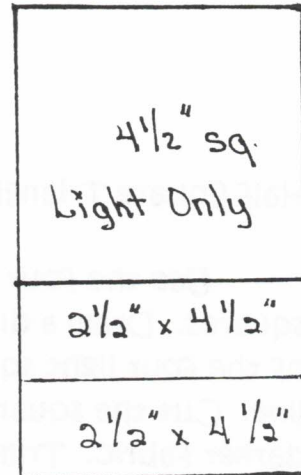 4 1/2" sq.
Light Only
2 1/2" x 4 1/2"
2 1/2" x 4 1/2"